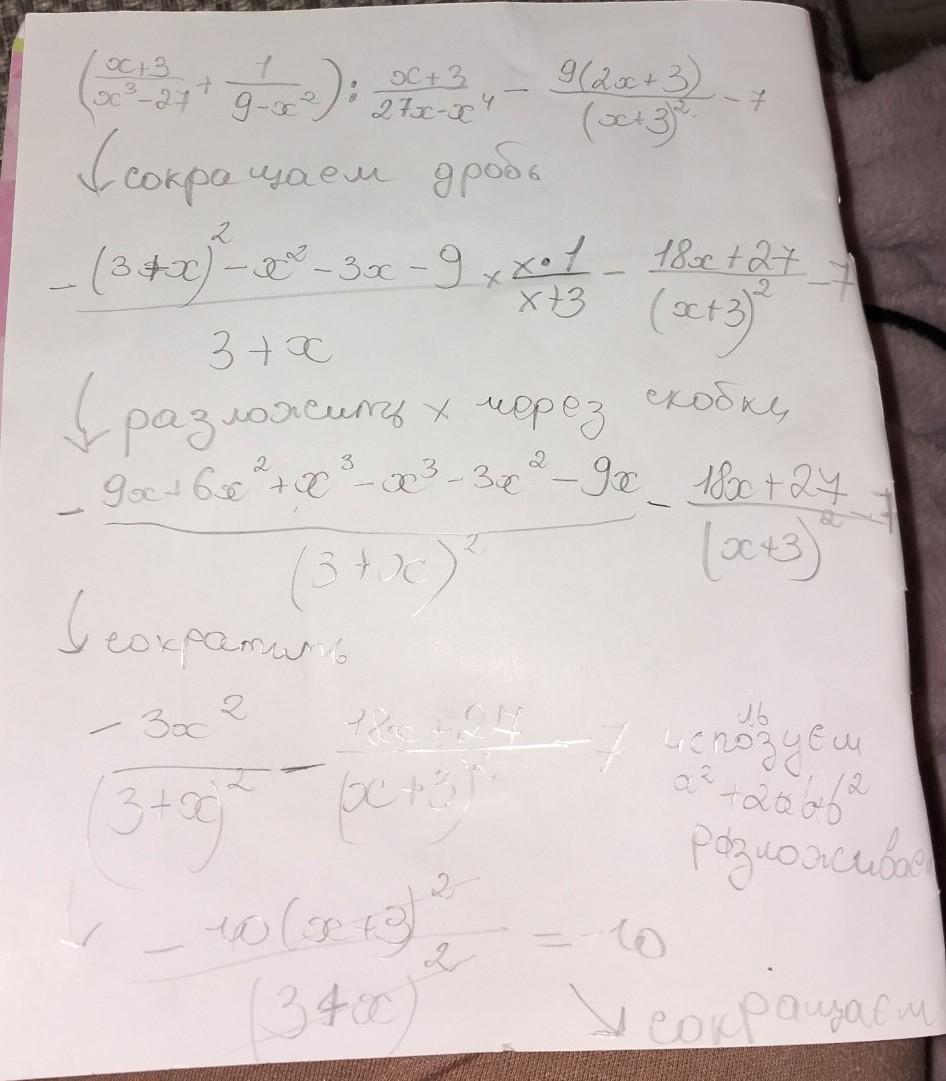 (x+3/x³-27 + 1/9-x²) : x+3/27x-x⁴ - 9(2x+3)/(x+3)² - 7
↓ сокращаем дробь
- (3+x)² - x² - 3x - 9/3+x × x•1/x+3 - 18x+27/(x+3)² - 7
↓ разложить x через скобки
- 9x+6x²+x³-x³-3x²-9x/(3+x)² - 18x+27/(x+3)² - 7
↓ сократить
-3x²/(3+x)² - 18x+27/(x+3)² - 7 испозуем
ль
a²+2ab+b²
розложивае
↓ -10(x+3)²/(3+x)² = -10
↘ сокращаем